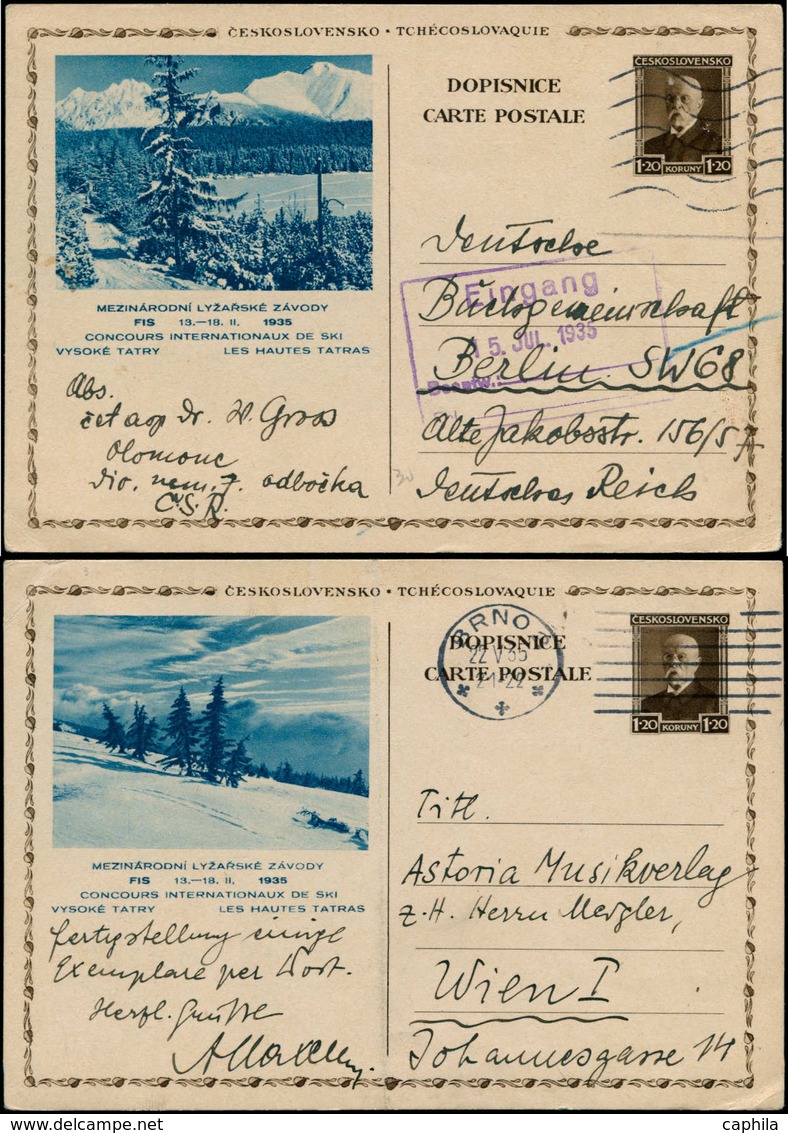 ČESKOSLOVENSKO • TCHÉCOSLOVAQUIE
DOPISNICE
CARTE POSTALE
ČESKOSLOVENSKO
1·20 KORUNY 1·20
MEZINÁRODNÍ LYŽAŘSKÉ ZÁVODY
FIS 13.—18. II. 1935
CONCOURS INTERNATIONAUX DE SKI
VYSOKÉ TATRY LES HAUTES TATRAS
Abs.
čet asp Dr. W. Gross
Olomouc
div. nem. 7. odbočka
Č.S.R.
Deutsche
Buchgemeinschaft
Berlin SW68
Alte Jakobsstr. 156/5
Deutsches Reich
Eingang
15. JUL. 1935
ČESKOSLOVENSKO • TCHÉCOSLOVAQUIE
BRNO
22 V 35
21-22
DOPISNICE
CARTE POSTALE
ČESKOSLOVENSKO
1·20 KORUNY 1·20
MEZINÁRODNÍ LYŽAŘSKÉ ZÁVODY
FIS 13.—18. II. 1935
CONCOURS INTERNATIONAUX DE SKI
VYSOKÉ TATRY LES HAUTES TATRAS
fertigstellung einige
Exemplare per Post.
Herzl. Grüsse
Titl.
Astoria Musikverlag
z. H. Herrn
Wien I
Johannesgasse 14
delcampe.net
caphila